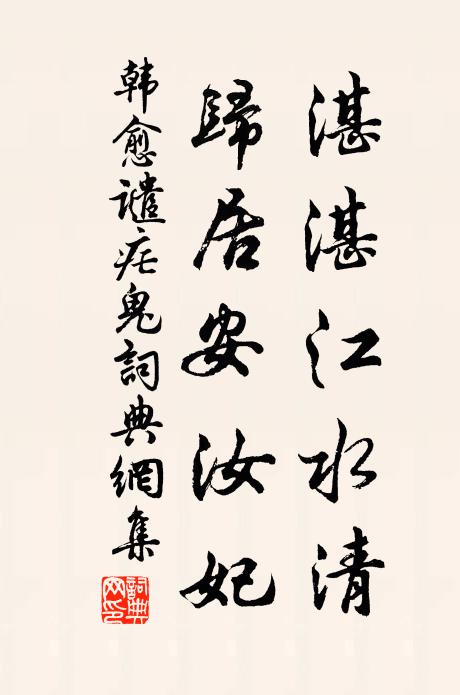 湛湛江水清
歸居安汝妃
韩愈譴疟鬼詞典網集
詞典网印